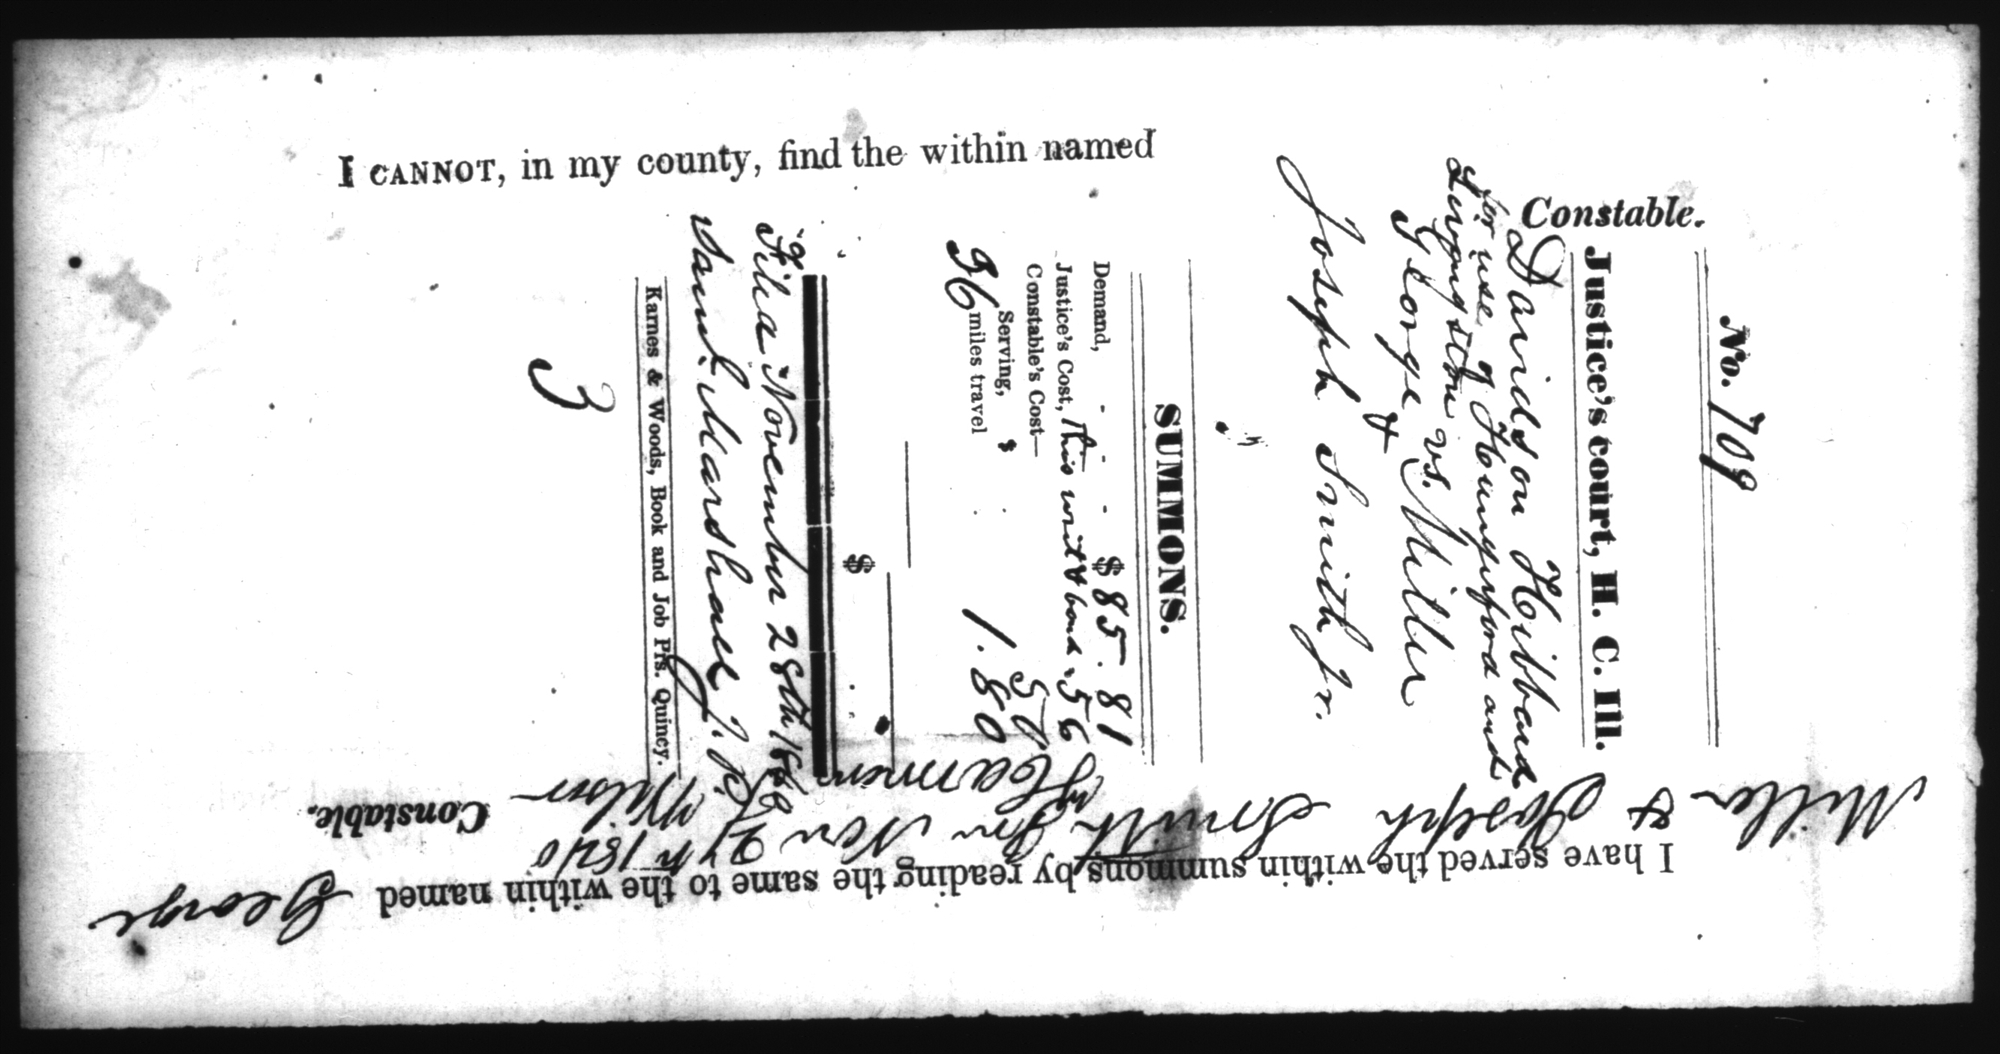 I CANNOT, in my county, find the within named
Constable.
No. 709
Justice's court, H. C. Ill.
Davidson Hibbard
for use of Hungerford and
Livingston vs.
George Miller
&
Joseph Smith Jr.
SUMMONS.
Demand, - - - $ 85.81
Justice's Cost, This writ & bond .56
Constable's Cost— 50
Serving, $
36 miles travel 1.80
$
Filed November 28th 1840
Saml. Marshall J. P.
Karnes & Woods, Book and Job Prs. Quincy.
3
I have served the within summons by reading the same to the within named George
Miller & Joseph Smith Jnr Nov 27th 1840
Harmon T Wilson Constable.